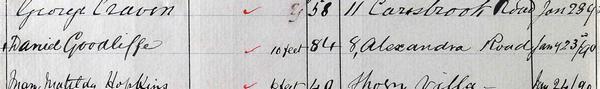 George Craven 58 11 Carisbrook Road Jan 23 9
Daniel Goodliffe 10 feet 84 8, Alexandra Road Jany 23/90
Mary Matilda Hopkins 6 feet 40 Thorn Villa Jan 24/90